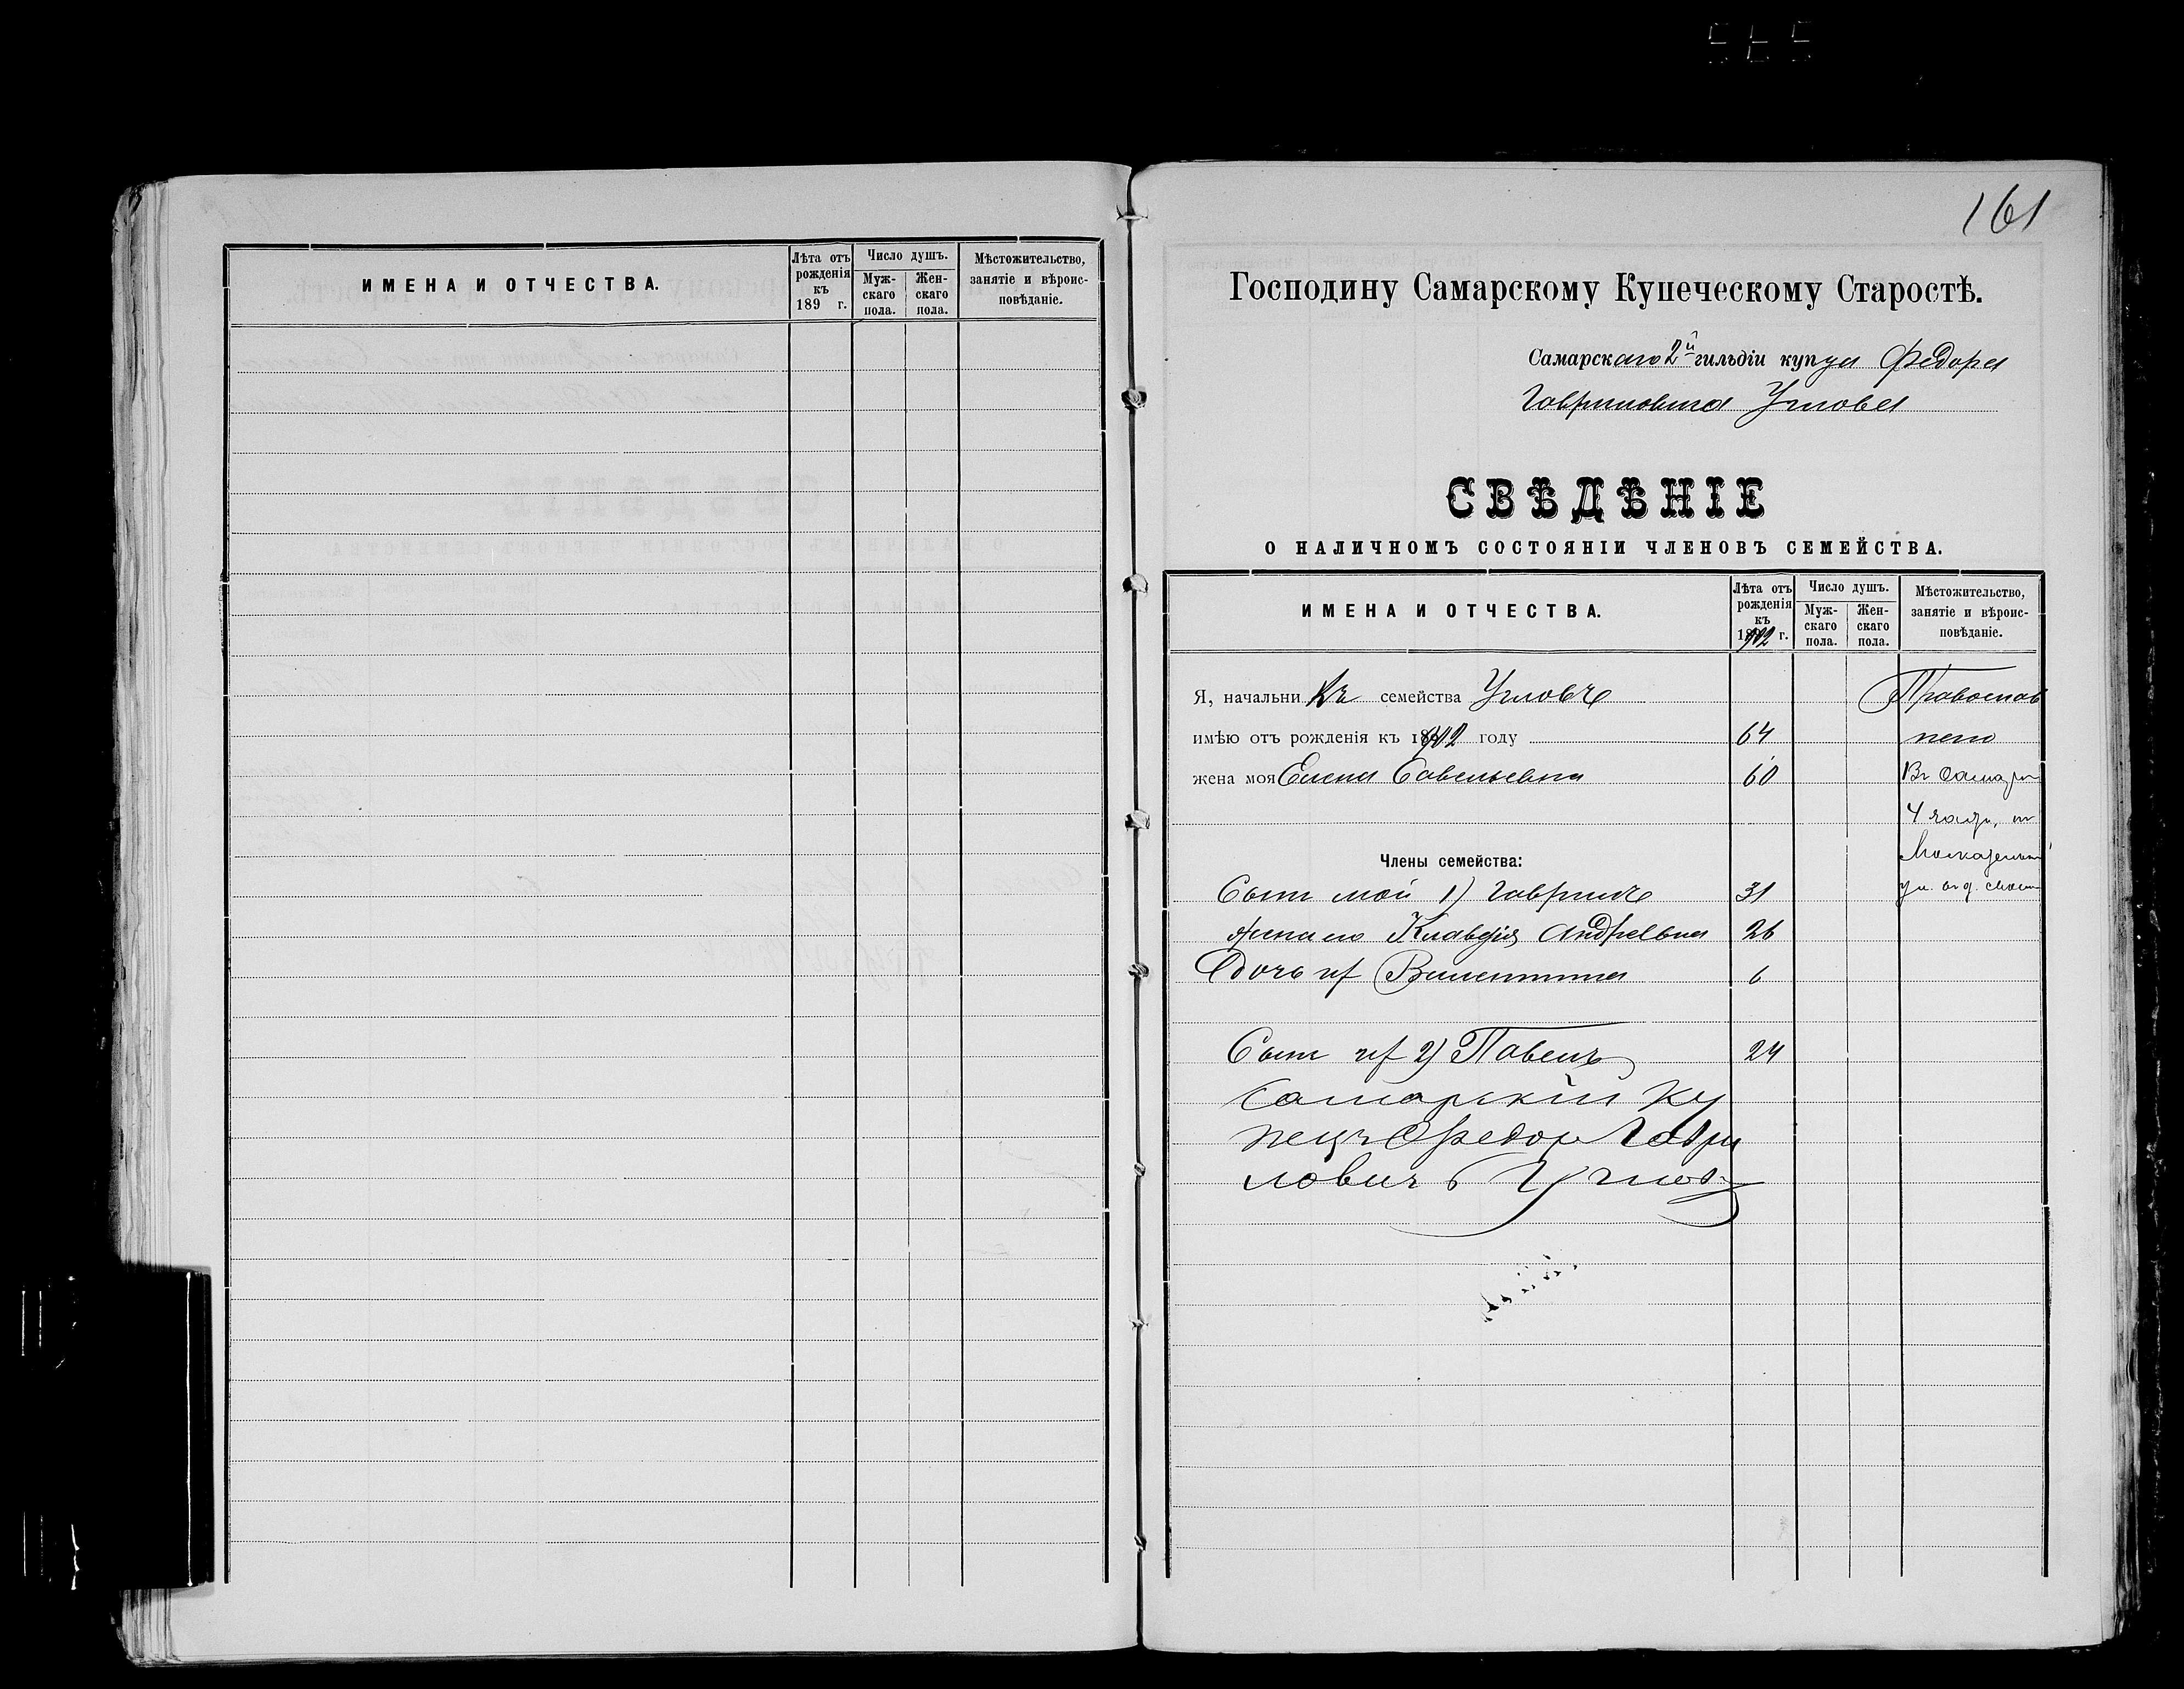 ИМЕНА И ОТЧЕСТВА.
Лѣта отъ рожденія къ 189 г.
Число душъ.
Мужскаго пола.
Женскаго пола.
Мѣстожительство, занятіе и вѣроисповѣданіе.
161
Господину Самарскому Купеческому Старостѣ.
Самарскаго 2й гильдіи купца Федора
Гавриловича Углова
СВѢДѢНІЕ
О НАЛИЧНОМЪ СОСТОЯНІИ ЧЛЕНОВЪ СЕМЕЙСТВА.
ИМЕНА И ОТЧЕСТВА.
Лѣта отъ рожденія къ 1902 г.
Число душъ.
Мужскаго пола.
Женскаго пола.
Мѣстожительство, занятіе и вѣроисповѣданіе.
Я, начальникъ семейства Угловъ Православ
имѣю отъ рожденія къ 1902 году 64
жена моя Елена Савельевна 60 Въ Самарѣ
4 части, на
Члены семейства:
Сынъ мой 1) Гавріилъ 31 ул. въ д. своем
жена его Клавдія Андреевна 26
Дочь их Валентина 6
Сынъ 2) Павелъ 24
Самарскій Ку
пецъ Федор Гаври
ловичъ Углов